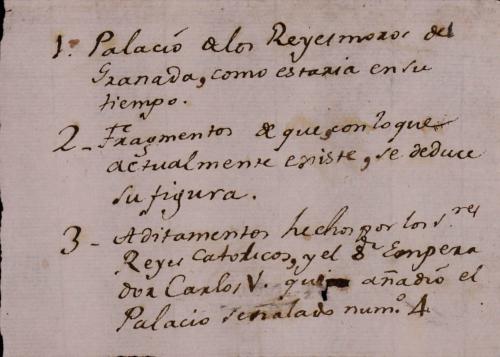 1. Palació de los Reyes moros de
Granada, como estaria en su
tiempo.
2 - Fragmentos de que, con lo que
actualmente existe, se deduce
su figura.
3 - Aditamentos hechos por los S.res
Reyes Catolicos, y el S.r Empera
dor Carlos V. añadió el
Palacio señalado num.o 4